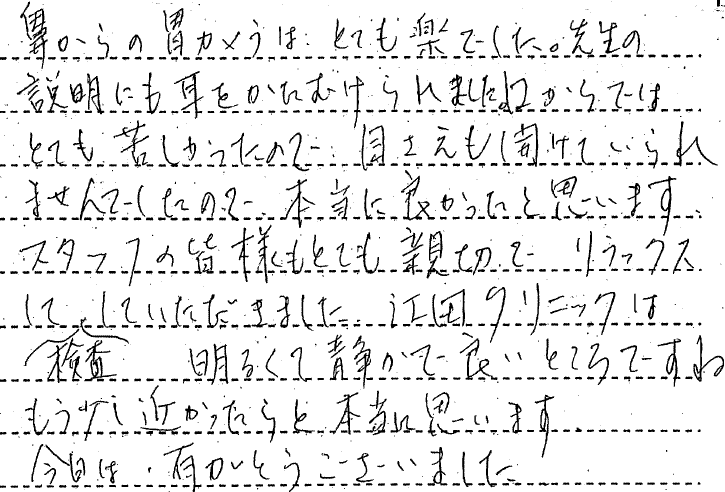 鼻からの胃カメラは とても楽でした。先生の
説明にも耳をかたむけられましたね口からでは
とても苦しかったので 目さえも開けていられ
ませんでしたので、本当に良かったと思います、
スタッフの皆様もとても親切で リラックス
して、していただきました 江田クリニックは
検査 明るくて静かで良いところですね
もう少し近かったらと本当に思います
今日は、有がとうございました